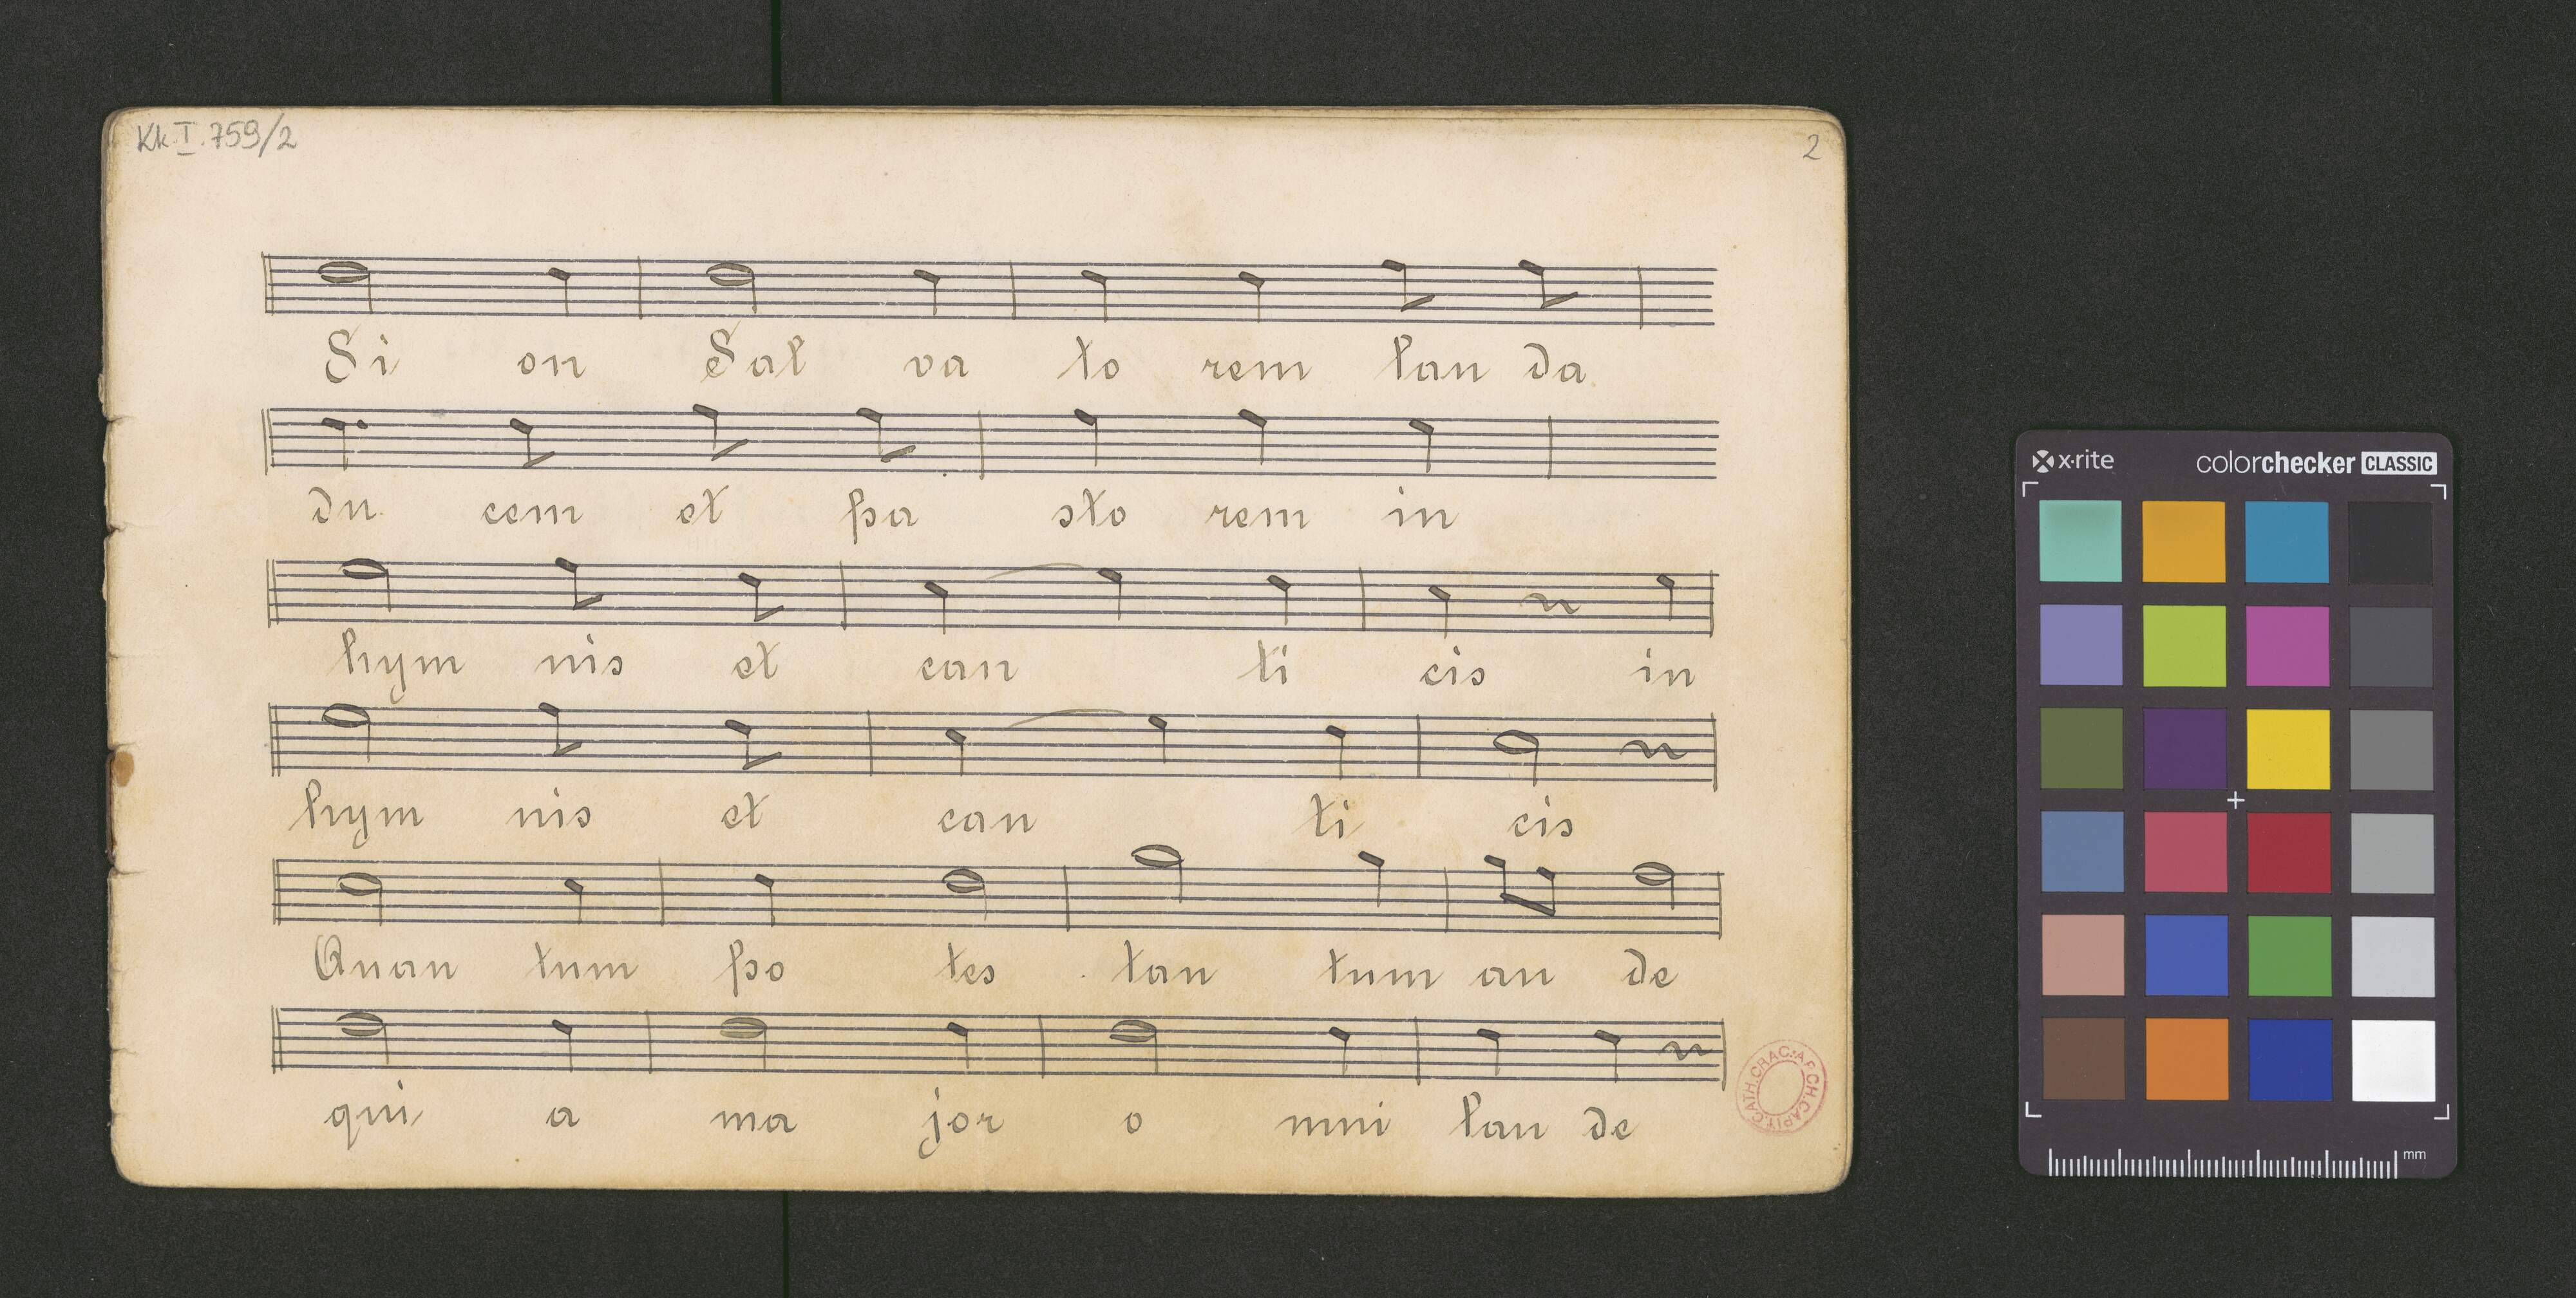 Kk.I.759/2
2
Si on Sal va to rem lau da
du cem et pa sto rem in
hym nis et can ti cis in
hym nis et can ti cis
Quan tum po tes tan tum au de
qui a ma jor o mni lau de
ARCH.CAPIT.CATH.CRAC.
x-rite
colorchecker CLASSIC
mm